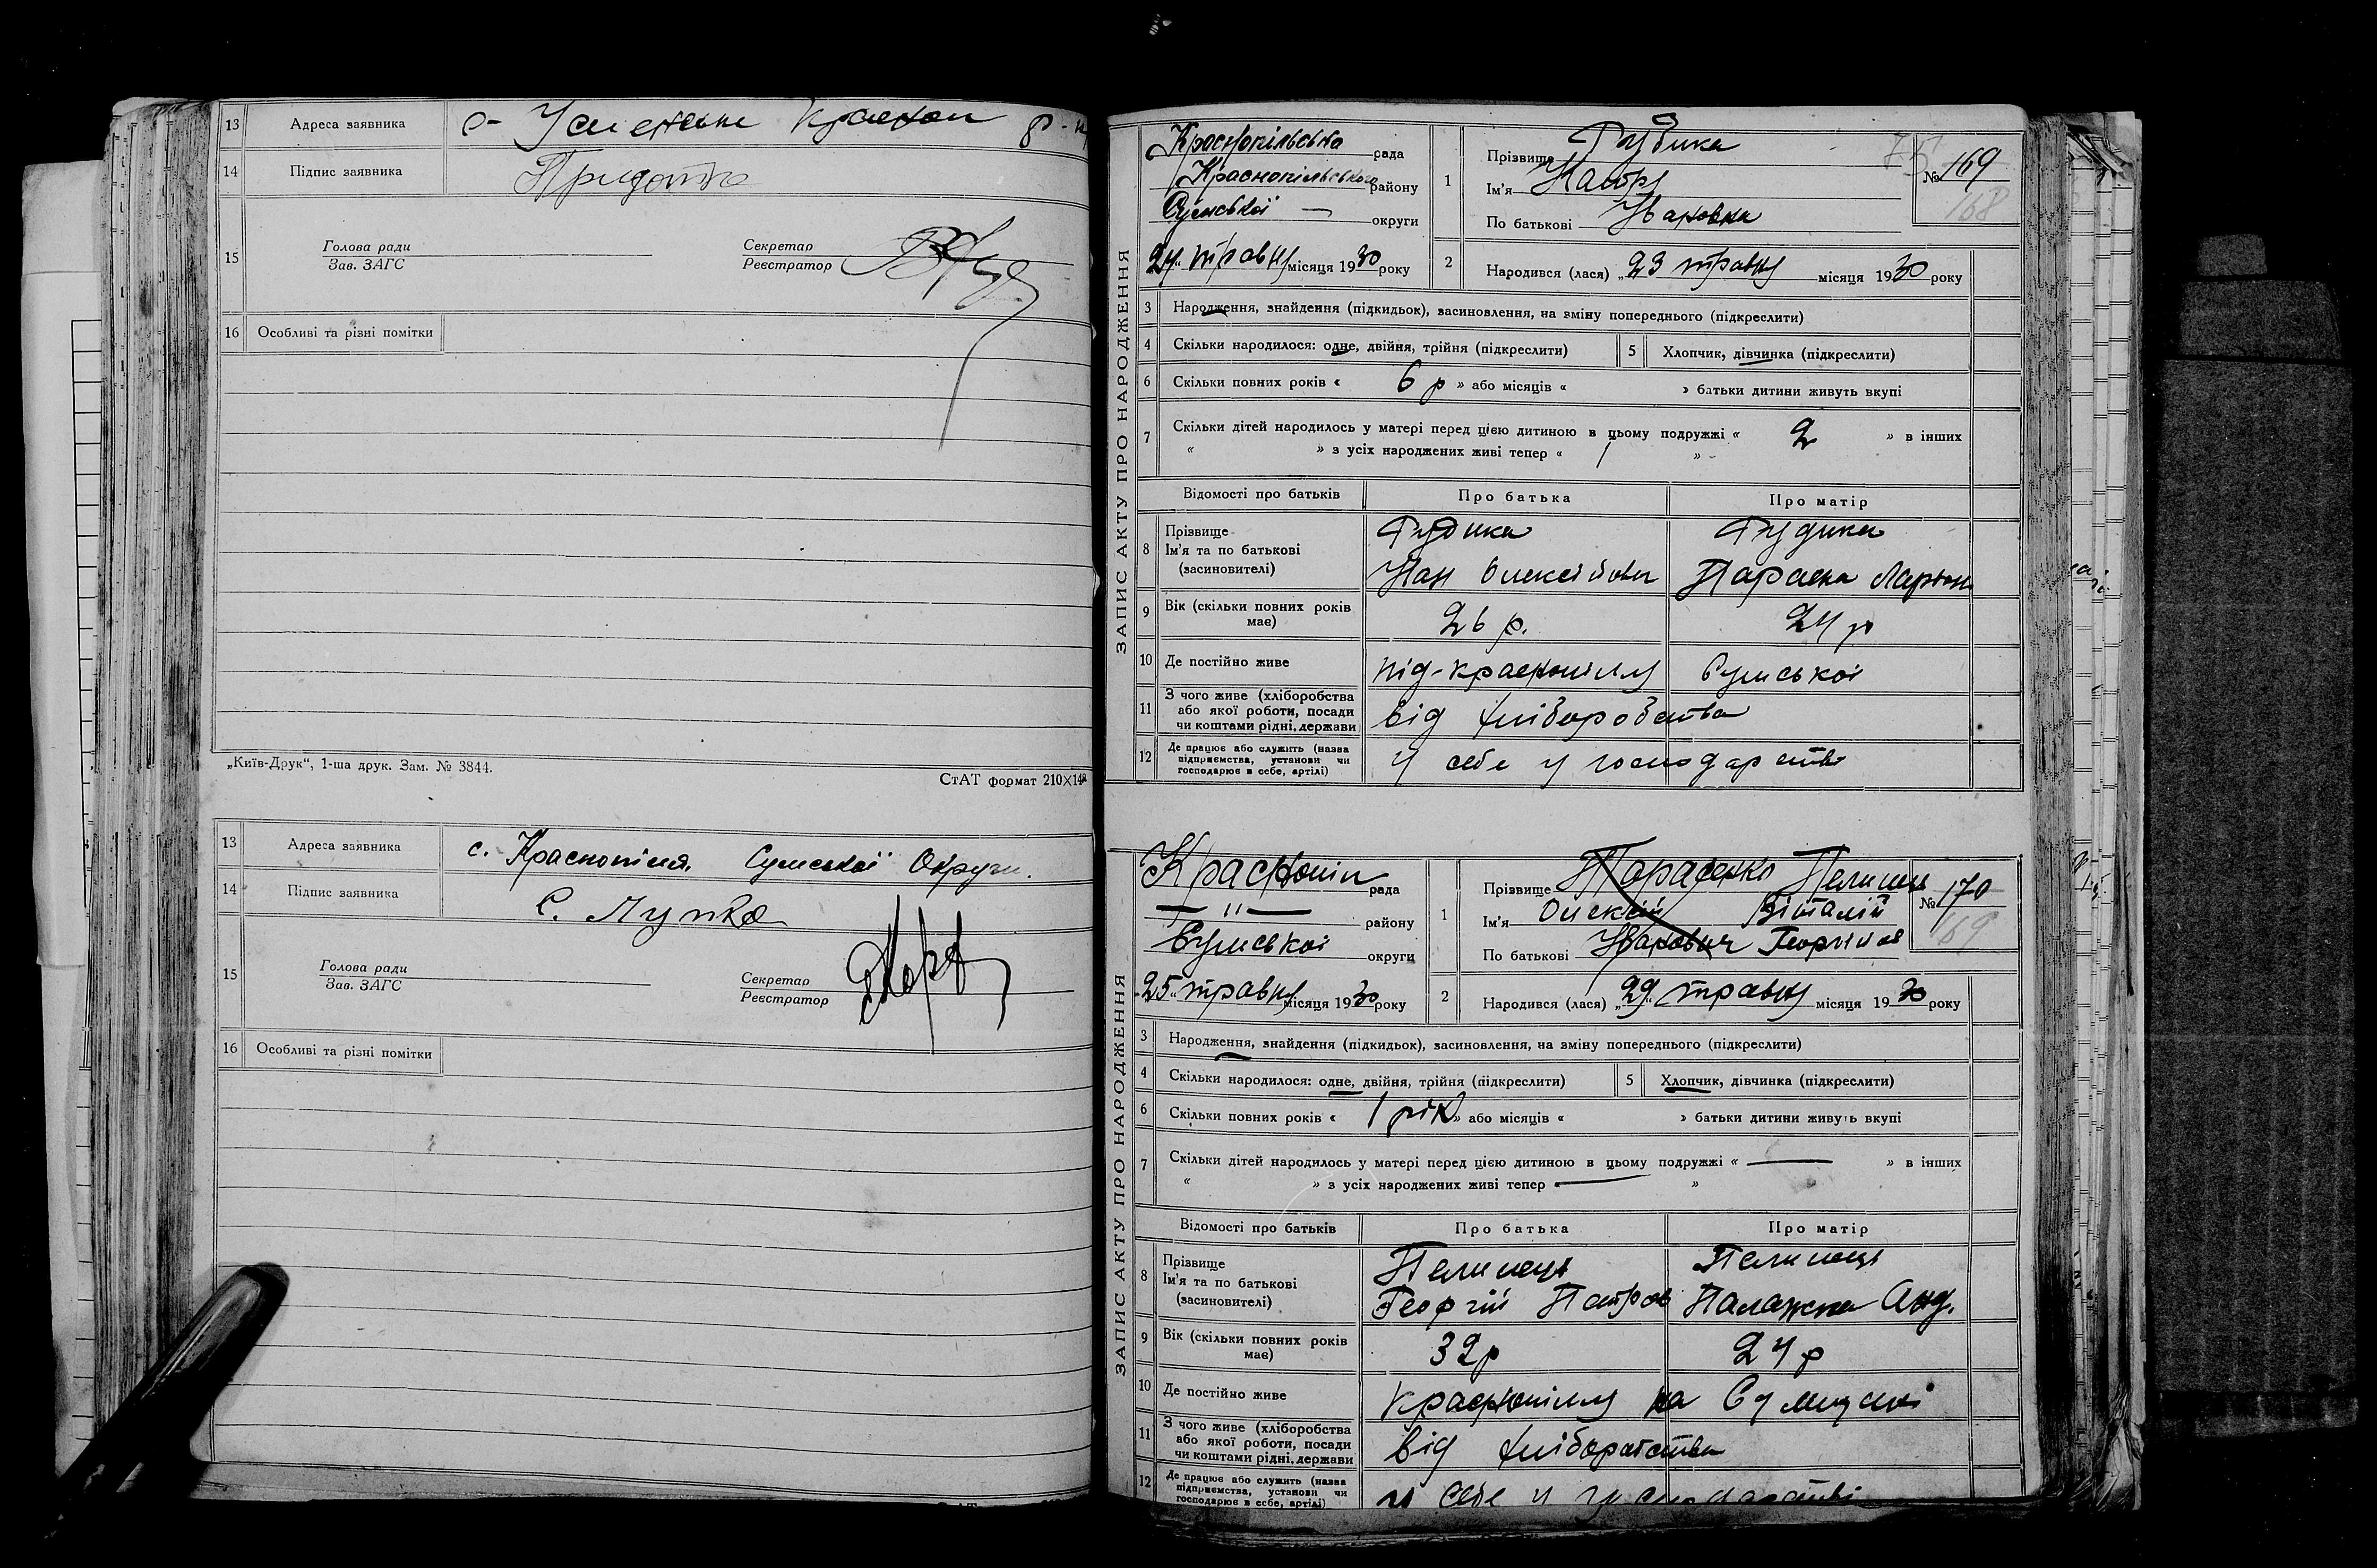 13 Адреса заявника с- Успенське Краснап р-н
14 Підпис заявника
15 Голова ради Секретар
Зав. ЗАГС Реєстратор
16 Особливі та різні помітки
„Київ-Друк“, 1-ша друк. Зам. № 3844.
СтАТ формат 210×148
13 Адреса заявника с. Краснопілля Сумської Округи.
14 Підпис заявника С. Лупка
15 Голова ради Секретар
Зав. ЗАГС Реєстратор
16 Особливі та різні помітки
ЗАПИС АКТУ ПРО НАРОДЖЕННЯ
Краснопільська рада
Краснопільського району
Сумської округи
24 травня місяця 1930 року
75
№ 169
168
1 Прізвище Гудика
Ім'я
По батькові Ивановна
2 Народився (лася) „23 травня місяця 1930 року
3 Народження, знайдення (підкидьок), засиновлення, на зміну попереднього (підкреслити)
4 Скільки народилося: одне, двійня, трійня (підкреслити) 5 Хлопчик, дівчинка (підкреслити)
6 Скільки повних років « 6 р » або місяців « » батьки дитини живуть вкупі
7 Скільки дітей народилось у матері перед цією дитиною в цьому подружжі « 2 » в інших
« » з усіх народжених живі тепер « 1 »
Відомості про батьків Про батька Про матір
8 Прізвище Гудика Гудика
Ім'я та по батькові
(засновителі) Иван Олексійович Параска Ларіон
9 Вік (скільки повних років має) 26 р. 24 р
10 Де постійно живе під-краснопіллу Сумської
11 З чого живе (хліборобства
або якої роботи, посади
чи коштами рідні, держави від хліборобства
12 Де працює або служить (назва
підприємства, установи чи
господарює в себе, артілі) у себе у господарстві
ЗАПИС АКТУ ПРО НАРОДЖЕННЯ
Краснопіл рада
— " — району
Сумської округи
25 травня місяця 1930 року
№ 170
169
1 Прізвище Тарасенко Пелипець
Ім'я Олексій Віталій
По батькові Иванович Георгійов
2 Народився (лася) „29“ травня місяця 1930 року
3 Народження, знайдення (підкидьок), засиновлення, на зміну попереднього (підкреслити)
4 Скільки народилося: одне, двійня, трійня (підкреслити) 5 Хлопчик, дівчинка (підкреслити)
6 Скільки повних років « 1 рік » або місяців « » батьки дитини живуть вкупі
7 Скільки дітей народилось у матері перед цією дитиною в цьому подружжі « — » в інших
« » з усіх народжених живі тепер « — »
Відомості про батьків Про батька Про матір
8 Прізвище Пелипець Пелипець
Ім'я та по батькові
(засиновителі) Георгій Петров Палажка Анд.
9 Вік (скільки повних років має) 32 р 24 р
10 Де постійно живе краснопіллу на Сумщині
11 З чого живе (хліборобства
або якої роботи, посади
чи коштами рідні, держави від хліборобства
12 Де працює або служить (назва
підприємства, установи чи
господарює в себе, артілі) у себе у господарстві